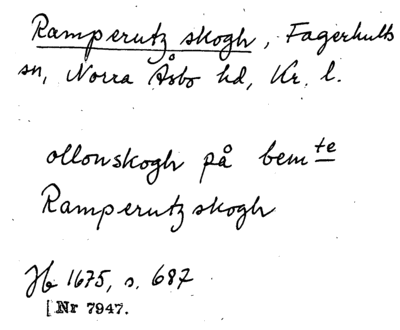 Ramperutz skogh, Fagerhults
sn, Norra Åsbo hd, Kr. l.
ollonskogh på bemte
Ramperutz skogh
Jb 1675, s. 687
[Nr 7947.